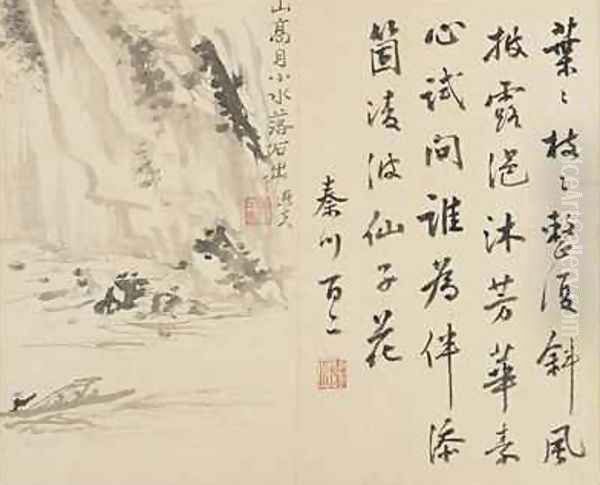 葉〻枝〻整復斜風
披露浥沐芳華素
心試問誰為伴添
箇凌波仙子花
秦川
山高月小水落石出